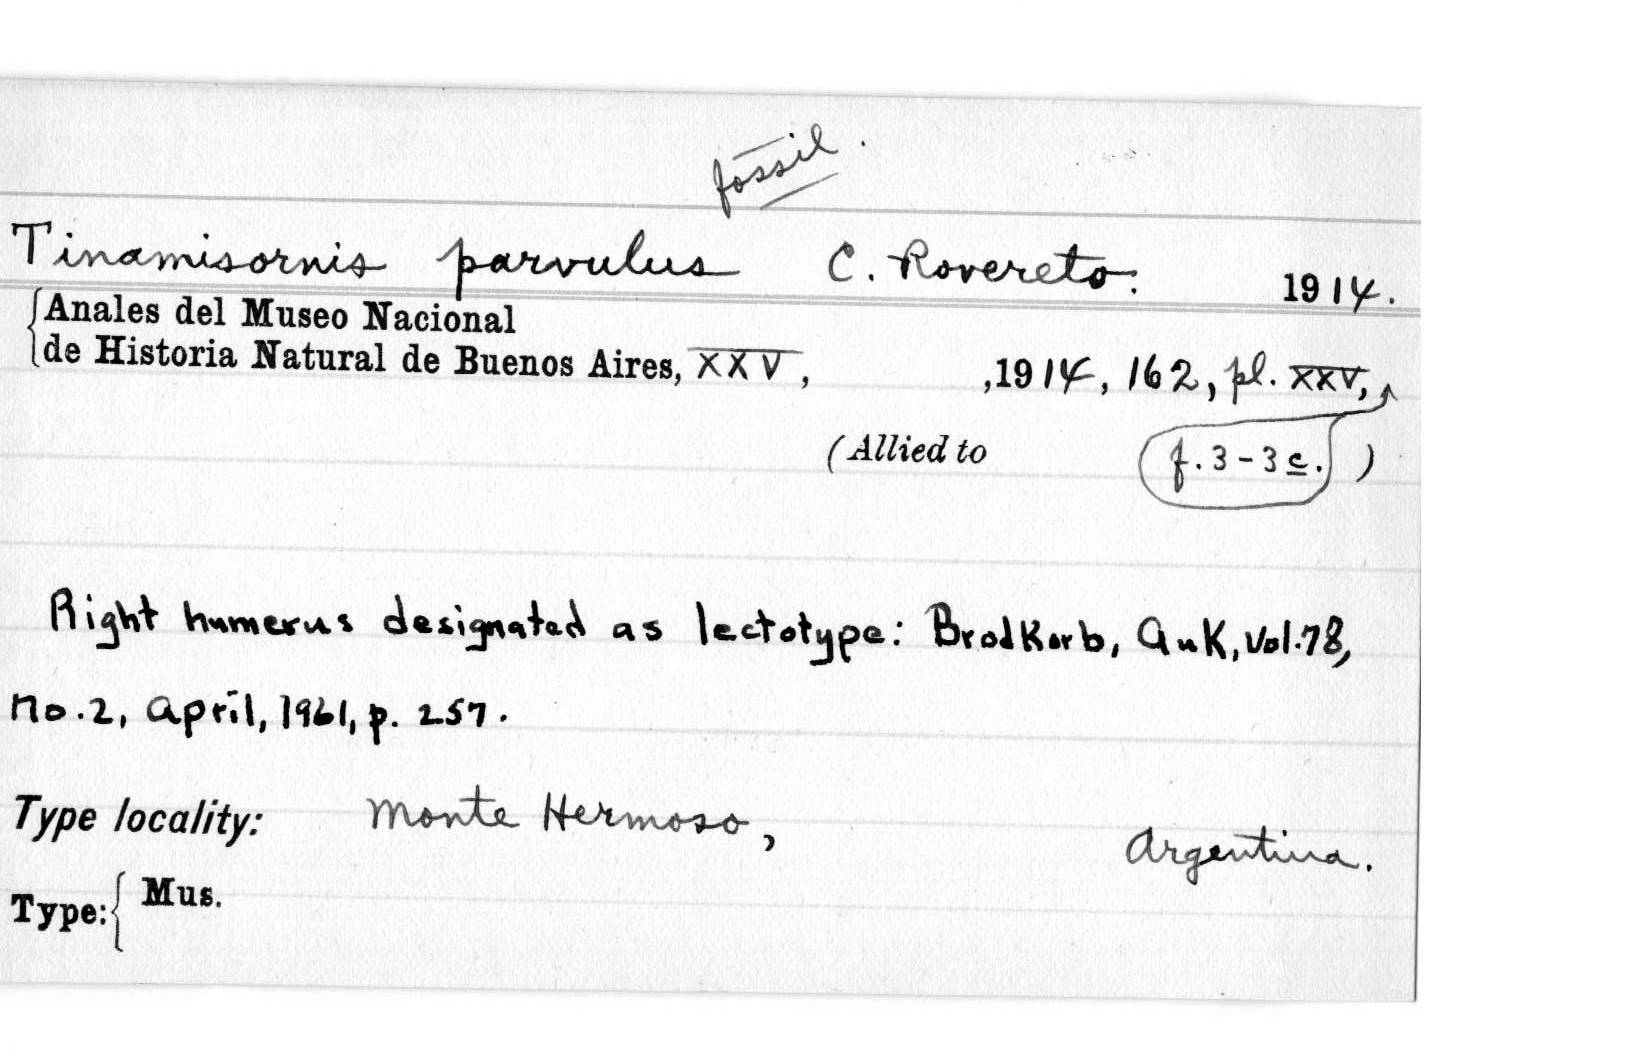 fossil.
Tinamisornis parvulus C. Rovereto. 1914.
{Anales del Museo Nacional
de Historia Natural de Buenos Aires, XXV, ,1914, 162, pl. XXV,
(Allied to f. 3-3c. )
Right humerus designated as lectotype: Brodkorb, Auk, Vol. 78,
no. 2, April, 1961, p. 257.
Type locality: Monte Hermoso, Argentina.
Type:{ Mus.